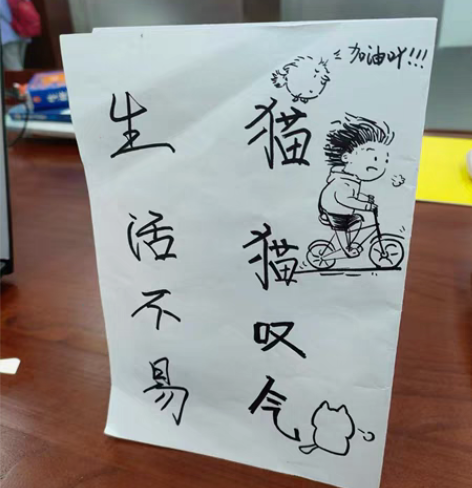 生活不易
猫猫叹气
加油吖!!!